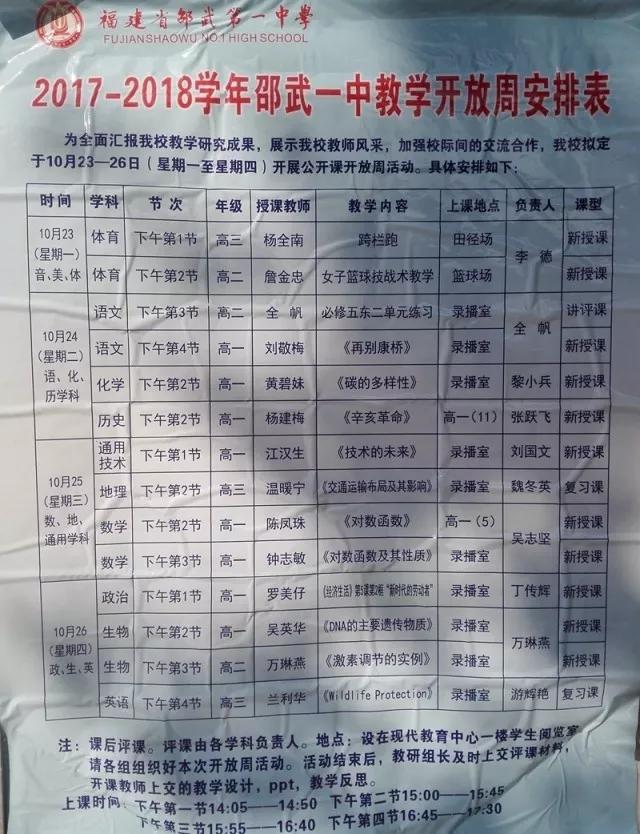 福建省邵武第一中学
FUJIANSHAOWU NO.1 HIGH SCHOOL
2017-2018学年邵武一中教学开放周安排表
为全面汇报我校教学研究成果，展示我校教师风采，加强校际间的交流合作，我校拟定
于10月23—26日（星期一至星期四）开展公开课开放周活动。具体安排如下：
时间 学科 节次 年级 授课教师 教学内容 上课地点 负责人 课型
10月23（星期一）音、美、体 体育 下午第1节 高三 杨全南 跨栏跑 田径场 李德 新授课
体育 下午第2节 高二 詹金忠 女子篮球技战术教学 篮球场 新授课
10月24（星期二）语、化、历学科 语文 下午第3节 高二 全帆 必修五东二单元练习 录播室 全帆 讲评课
语文 下午第4节 高一 刘敬梅 《再别康桥》 录播室 新授课
化学 下午第2节 高一 黄碧妹 《碳的多样性》 录播室 黎小兵 新授课
历史 下午第2节 高一 杨建梅 《辛亥革命》 高一（11） 张跃飞 新授课
10月25（星期三）数、地、通用学科 通用技术 下午第1节 高一 江汉生 《技术的未来》 录播室 刘国文 新授课
地理 下午第2节 高三 温暖宁 《交通运输布局及其影响》 录播室 魏冬英 复习课
数学 下午第2节 高一 陈凤珠 《对数函数》 高一（5） 吴志坚 新授课
数学 下午第3节 高一 钟志敏 《对数函数及其性质》 录播室 新授课
10月26（星期四）政、生、英 政治 下午第1节 高一 罗美仔 《经济生活》第5课第2框“新时代的劳动者” 录播室 丁传辉 新授课
生物 下午第2节 高一 吴英华 《DNA的主要遗传物质》 录播室 万琳燕 新授课
生物 下午第3节 高二 万琳燕 《激素调节的实例》 录播室 新授课
英语 下午第4节 高三 兰利华 《Wildlife Protection》 录播室 游辉艳 复习课
注：课后评课。评课由各学科负责人。地点：设在现代教育中心一楼学生阅览室，
请各组组织好本次开放周活动。活动结束后，教研组长及时上交评课材料，
开课教师上交的教学设计，ppt，教学反思。
上课时间：下午第一节14:05——14:50 下午第二节15:00——15:45
下午第三节15:55——16:40 下午第四节16:45——17:30